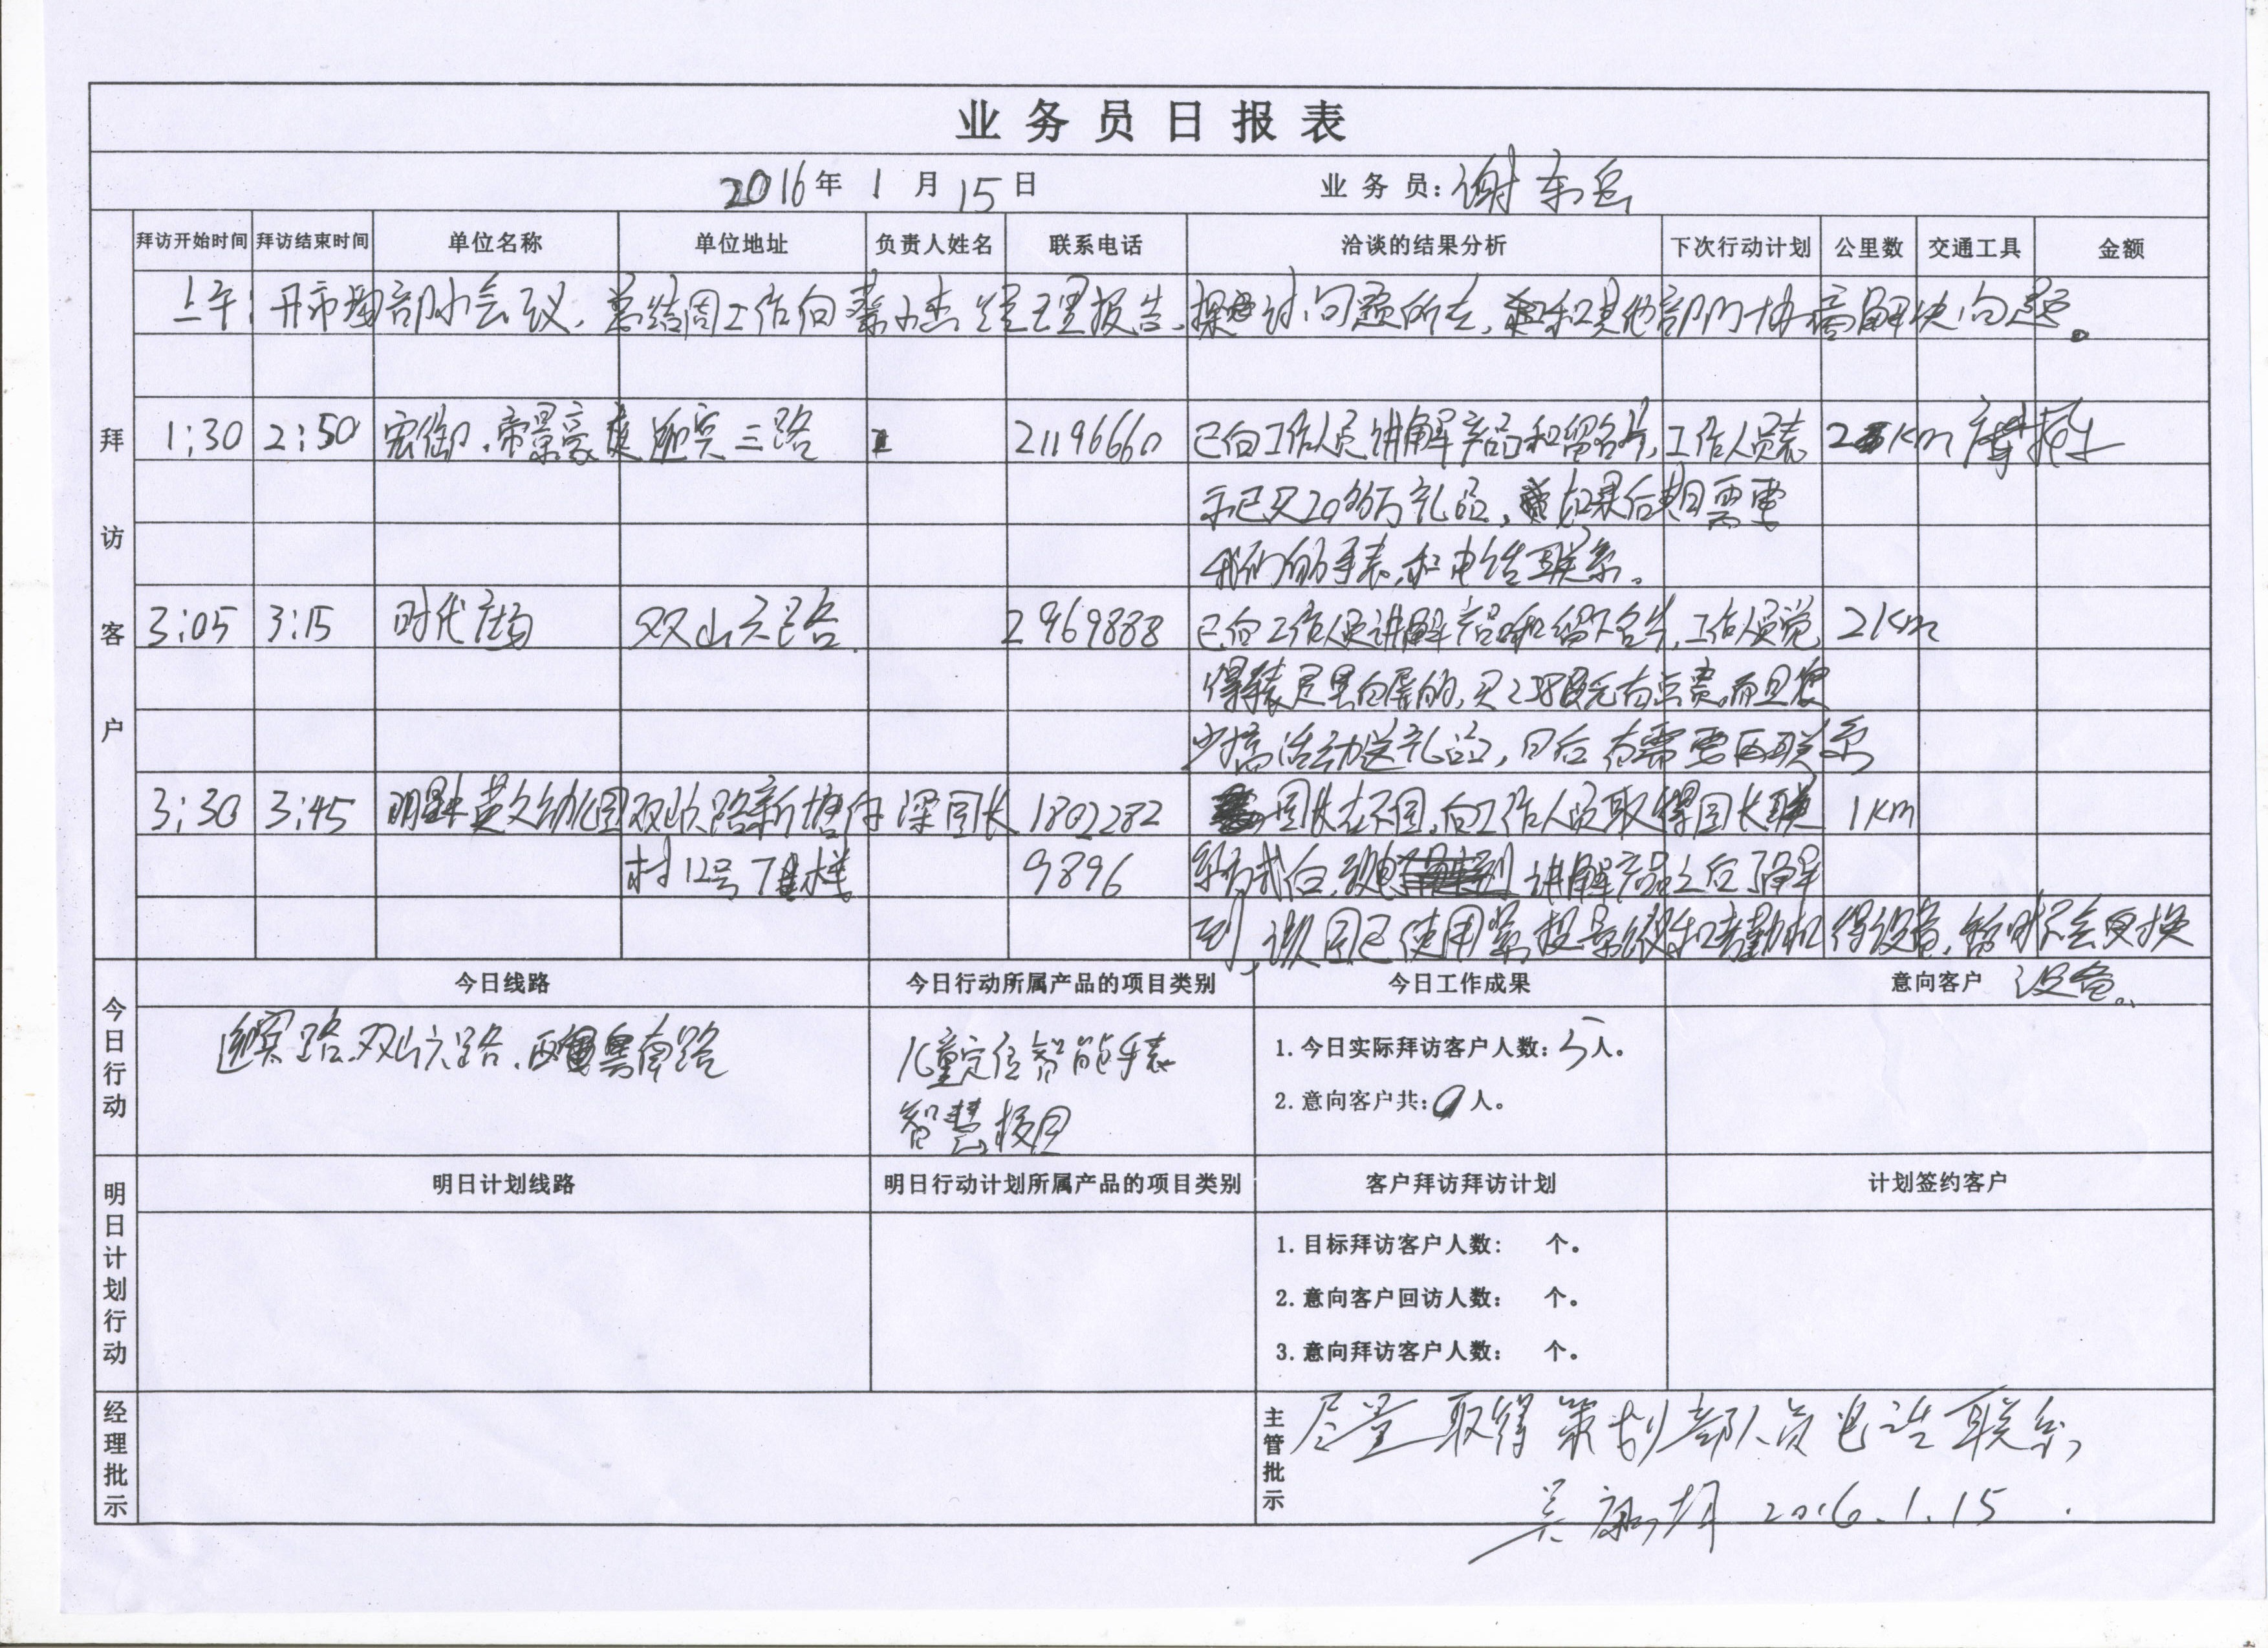 业务员日报表
2016年 1 月 15 日 业务员:谢东岳
拜访开始时间 拜访结束时间 单位名称 单位地址 负责人姓名 联系电话 洽谈的结果分析 下次行动计划 公里数 交通工具 金额
拜访客户
上午: 开市场部小会议,总结周工作向 经理报告,探讨问题所在,和其他部门协商解决问题。
1:30 2:50 宏御·帝景豪庭 迎宾三路 2196660 已向工作人员讲解产品和留名片,工作人员表 2km 摩托车
示已买20多万礼品,如果后期需要
我们的手表,和电话联系。
3:05 3:15 时代广场 双山六路. 2969888 已向工作人员讲解产品和留下名片,工作人员觉 2km
得表是黑白屏的,买 元有点贵,而且很
少搞活动送礼品,日后有需要再联系
3:30 3:45 英文幼儿园 路新塘 梁园长 1802282 园长不在园,向工作人员取得园长联 1km
村12号 9896 系方式后,致电讲解产品之后了解
到,该园已使用 投影仪和考勤机得设备,暂时不会更换
设备。
今日行动
今日线路 今日行动所属产品的项目类别 今日工作成果 意向客户
迎宾路.双山六路. 南路 儿童定位智能手表 1.今日实际拜访客户人数:5人。
智慧校园 2.意向客户共:0人。
明日计划行动
明日计划线路 明日行动计划所属产品的项目类别 客户拜访拜访计划 计划签约客户
1.目标拜访客户人数: 个。
2.意向客户回访人数: 个。
3.意向拜访客户人数: 个。
经理批示 主管批示 尽量取得策划部人员电话联系,
吴 2016.1.15